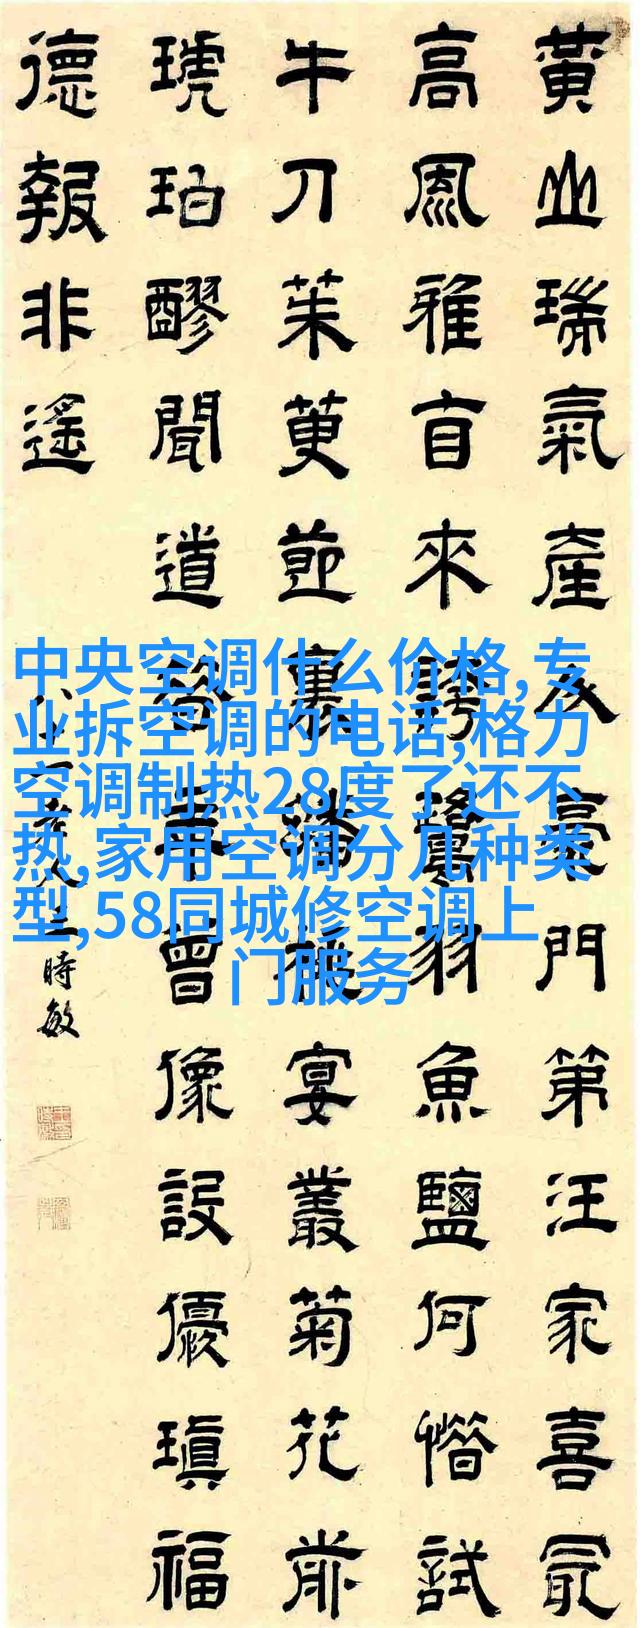 中央空调什么价格,专
业拆空调的电话,格力
空调制热28度了还不
热,家用空调分几种类
型,58同城修空调上
门服务
黃山瑞氣產人豪門第汪家喜冣
高風雅來羽魚鹽何惜試
牛刀茱萸節裏宴叢菊花前
琥珀醪聞道曾像設優瑱福
德報非遙
時敏